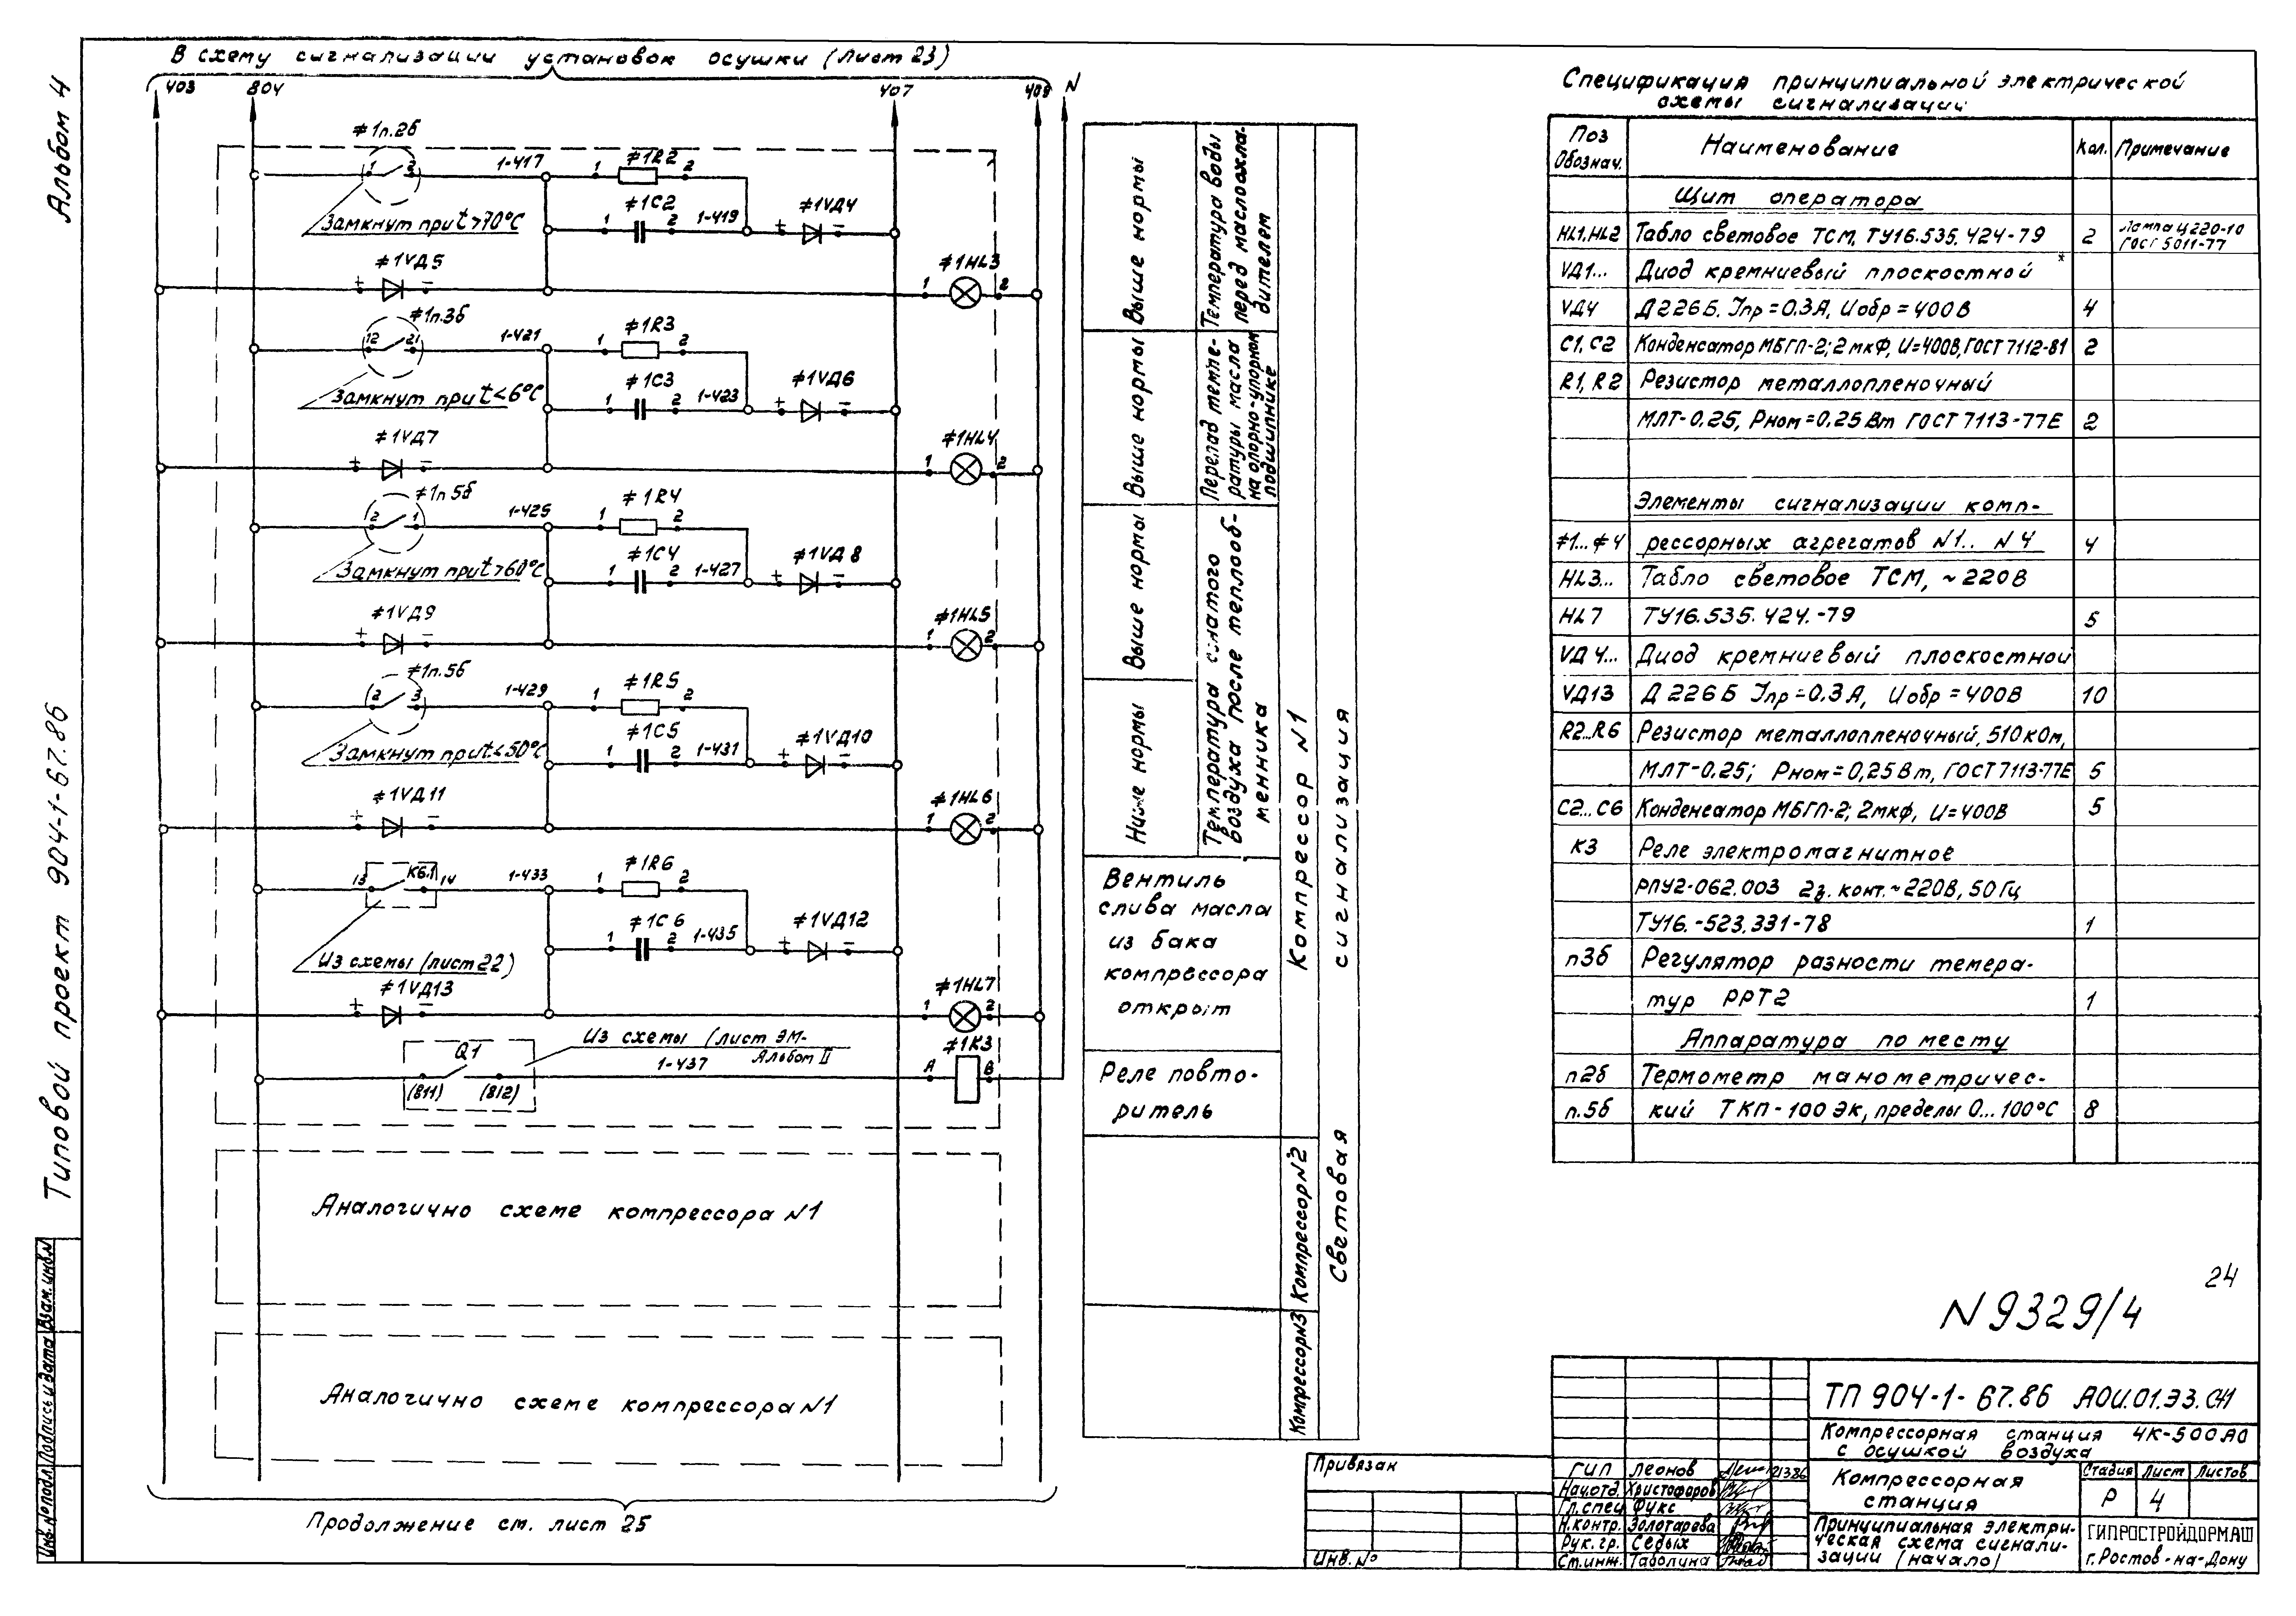 Альбом 4
Типовой проект 904-1-67.86
В схему сигнализации установок осушки (лист 23)
403 804 407 409 N
≠1п.2б
1 2
1-417
1 ≠1R2 2
Замкнут при t>70°С
≠1С2
1 2 1-419
≠1VД4
+ −
≠1VД5
+ −
≠1HL3
1 2
≠1п.3б
12 21
1-421
≠1R3
1 2
Замкнут при t<6°С
≠1С3
1 2 1-423
≠1VД6
+ −
≠1VД7
+ −
≠1HL4
1 2
≠1п.5б
2 1
1-425
≠1R4
1 2
Замкнут при t>60°С
≠1С4
1 2 1-427
≠1VД8
+ −
≠1VД9
+ −
≠1HL5
1 2
≠1п.5б
2 3
1-429
≠1R5
1 2
Замкнут при t<50°С
≠1С5
1 2 1-431
≠1VД10
+ −
≠1VД11
+ −
≠1HL6
1 2
13 К6.1 14
1-433
≠1R6
1 2
Из схемы (лист 22)
≠1С6
1 2 1-435
≠1VД12
+ −
≠1VД13
+ −
≠1HL7
1 2
Q1
(811) (812)
Из схемы (лист ЭМ-
Альбом II
1-437
≠1К3
А В
Аналогично схеме компрессора N1
Аналогично схеме компрессора N1
Продолжение см. лист 25
Выше нормы
Температура воды
перед маслоохла-
дителем
Выше нормы
Перепад темпе-
ратуры масла
на опорно-упорном
подшипнике
Выше нормы
Ниже нормы
Температура сжатого
воздуха после теплооб-
менника
Вентиль
слива масла
из бака
компрессора
открыт
Реле повто-
ритель
Компрессор N1
Компрессор N2
Компрессор N3
Световая сигнализация
Спецификация принципиальной электрической
схемы сигнализации
Поз Обознач. Наименование Кол. Примечание
Щит оператора
HL1,HL2 Табло световое ТСМ, ТУ16.535.424-79 2 Лампа Ц220-10 ГОСТ 5011-77
VД1... Диод кремниевый плоскостной
VД4 Д226Б. Iпр=0.3А, Uобр=400В 4
С1, С2 Конденсатор МБГП-2; 2мкФ, U=400В, ГОСТ 7112-81 2
R1, R2 Резистор металлопленочный
МЛТ-0,25, Рном=0,25Вт ГОСТ 7113-77Е 2
Элементы сигнализации комп-
≠1...≠4 рессорных агрегатов N1.. N4 4
HL3... Табло световое ТСМ, ~220В
HL7 ТУ16.535.424.-79 5
VД4... Диод кремниевый плоскостной
VД13 Д226Б Iпр=0.3А, Uобр=400В 10
R2...R6 Резистор металлопленочный, 510кОм,
МЛТ-0,25; Рном=0,25Вт, ГОСТ 7113-77Е 5
С2...С6 Конденсатор МБГП-2; 2мкф, U=400В 5
К3 Реле электромагнитное
РПУ2-062.003 2з. конт. ~220В, 50Гц
ТУ16.-523.331-78 1
п3б Регулятор разности темера-
тур РРТ2 1
Аппаратура по месту
п2б Термометр манометричес-
п.5б кий ТКП-100ЭК, пределы 0...100°С 8
24
N 9329/4
Привязан
Инв. №
ГИП Леонов 21386
Нач.отд. Христофоров
Гл.спец Фукс
Н.контр. Золотарева
Рук.гр. Седых
Ст.инж. Таболина
ТП 904-1-67.86 АОИ.01.ЭЗ.СН1
Компрессорная станция 4К-500АО
с осушкой воздуха
Компрессорная
станция
Стадия Лист Листов
Р 4
Принципиальная электри-
ческая схема сигнали-
зации (начало)
ГИПРОСТРОЙДОРМАШ
г. Ростов-на-Дону
Инв.№ подл. Подпись и дата Взам.инв.N